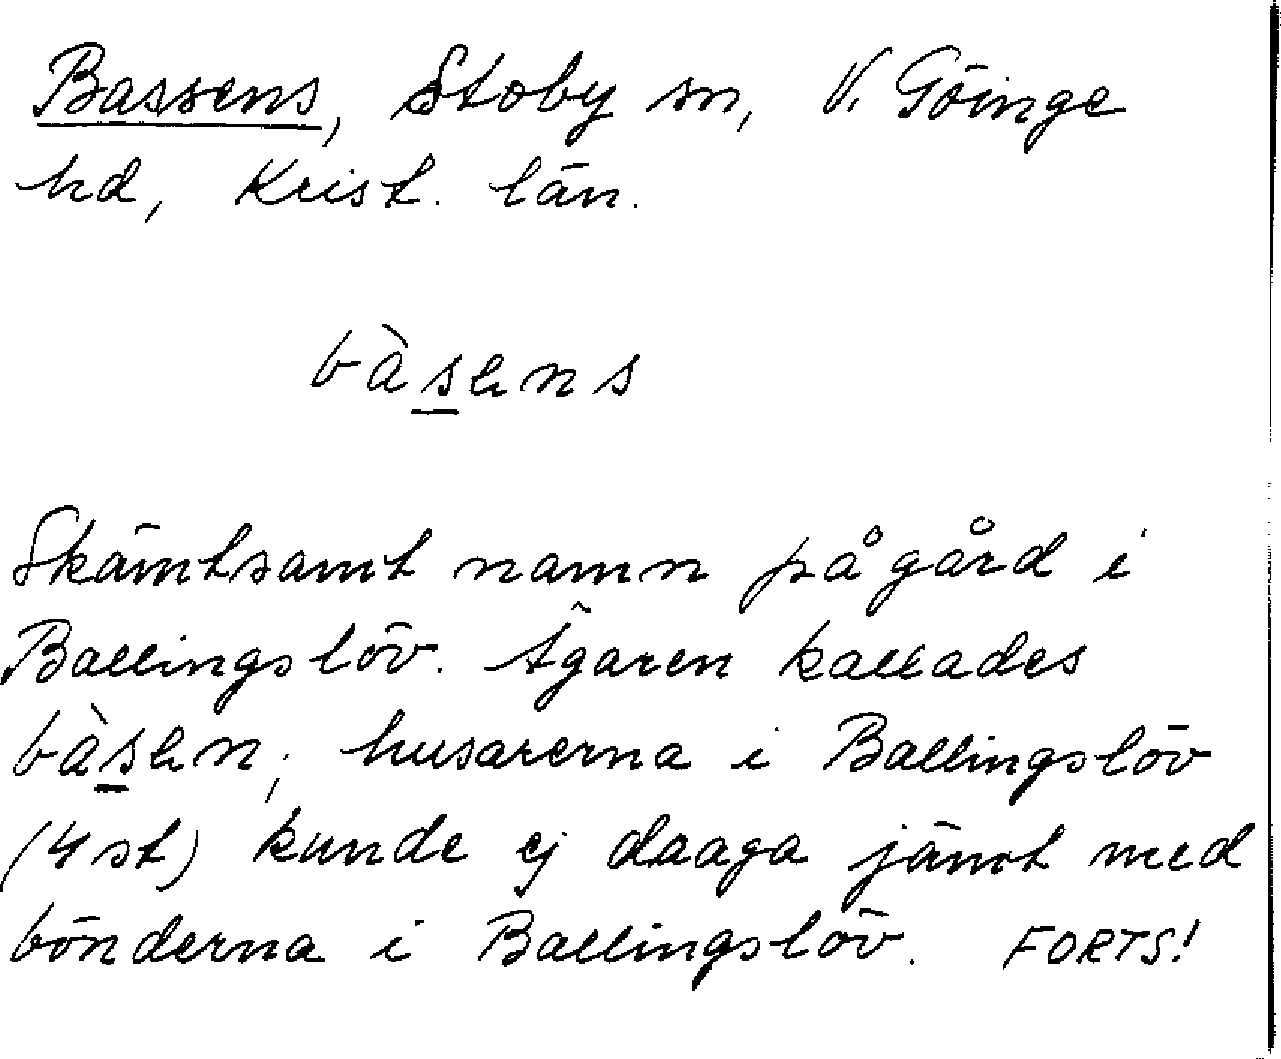 Bassens, Stoby sn, V. Göinge
hd, Krist. län.
bàsens
Skämtsamt namn på gård i
Ballingslöv. Ägaren kallades
bàsen; husarerna i Ballingslöv
(4 st) kunde ej draaga jämt med
bönderna i Ballingslöv. FORTS!